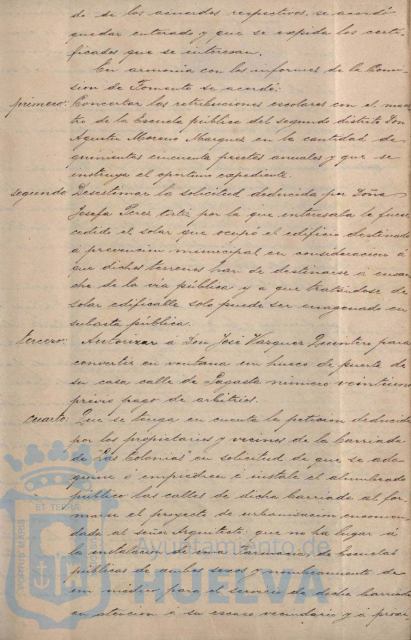 de de los acuerdos respectivos, se acordó
quedar enterado y que se expida los certi-
ficados que se interesan.
En armonía con los informes de la Comi-
sion de Fomento se acordó:
primero: Concertar las retribuciones escolares con el maes-
tro de la Escuela pública del segundo distrito Don
Agustin Moreno Marquez en la cantidad de
quinientas cincuenta pesetas anuales y que se
instruya el oportuno expediente.
segundo Desestimar la solicitud deducida por Doña
Josefa Perez Ortiz por la que interesaba le fuese
cedido el solar que ocupó el edificio destinado
á prevencion municipal en consideracion á
que dichos terrenos han de destinarse á ensan-
che de la via pública y a que tratándose de
solar edificable solo puede ser enagenado en
subasta pública.
tercero: Autorizar á Don José Vazquez para
convertir en ventana un hueco de puerta de
su casa calle de Sagasta número veintiuno
previo pago de arbitrios.
cuarto: Que se tenga en cuenta la peticion deducida
por los propietarios y vecinos de la barriada
de "Las Colonias" en solicitud de que se ado-
quine ó empiedren é instale el alumbrado
público las calles de dicha barriada al for-
marse el proyecto de urbanización encomen-
dada al señor Arquitecto; que no ha lugar á
la instalacion de una tarima de Escuelas
públicas de ambos sexos y nombramiento de
un médico para el servicio de dicha barriada
en atencion á su escaso vecindario y á proxi
ET TERRA
PORTUS MARIS
Ayuntamiento de
HUELVA